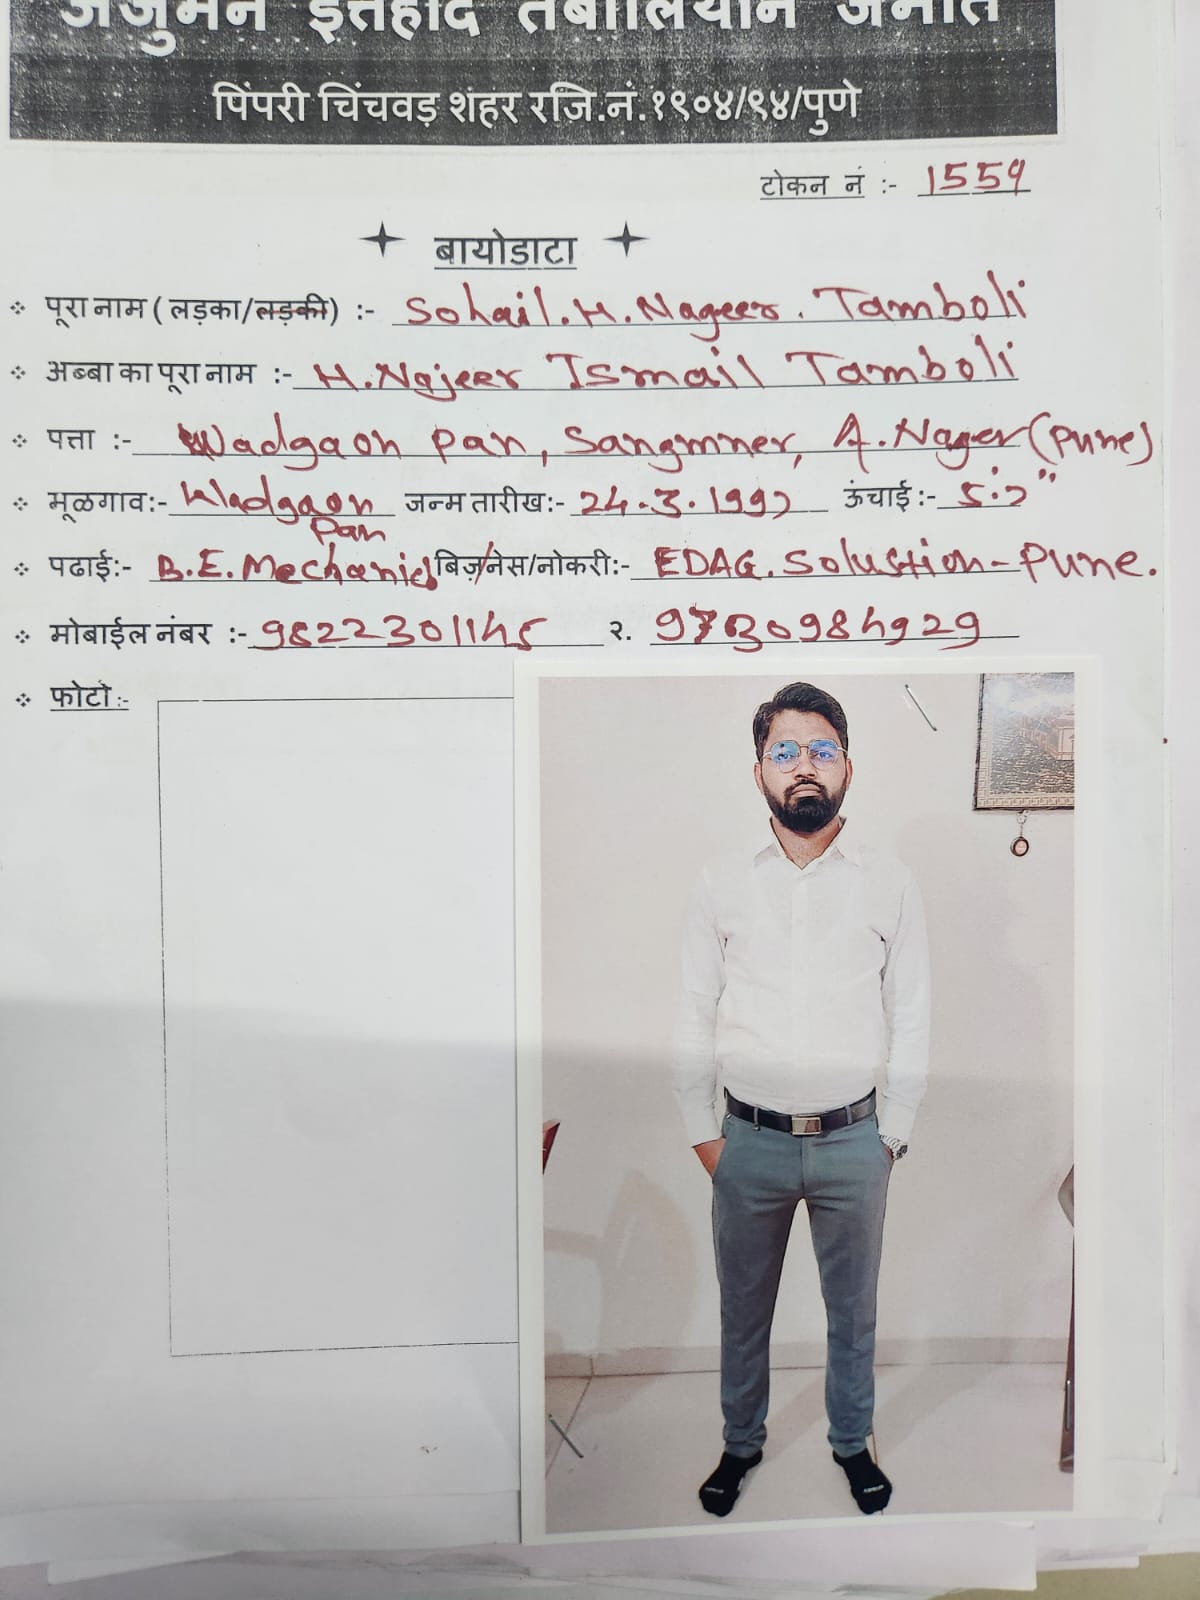 अंजुमन इत्तेहाद तंबोलियान जमात
पिंपरी चिंचवड़ शहर रजि.नं.१९०४/९४/पुणे
टोकन नं :- 1559
बायोडाटा
पूरा नाम ( लड़का/लड़की) :- Sohail. H. Nageer. Tamboli
अब्बा का पूरा नाम :- H. Najeer Ismail Tamboli
पत्ता :- Wadgaon pan, Sangmner, A. Nager (Pune)
मूळगाव:- Wadgaon Pan जन्म तारीख:- 24.3.1997 ऊंचाई:- 5.7"
पढाई:- B.E. Mechanicl बिज़नेस/नोकरी:- EDAG. Solustion - Pune.
मोबाईल नंबर :- 9822301145 २. 9730984929
फोटो :-